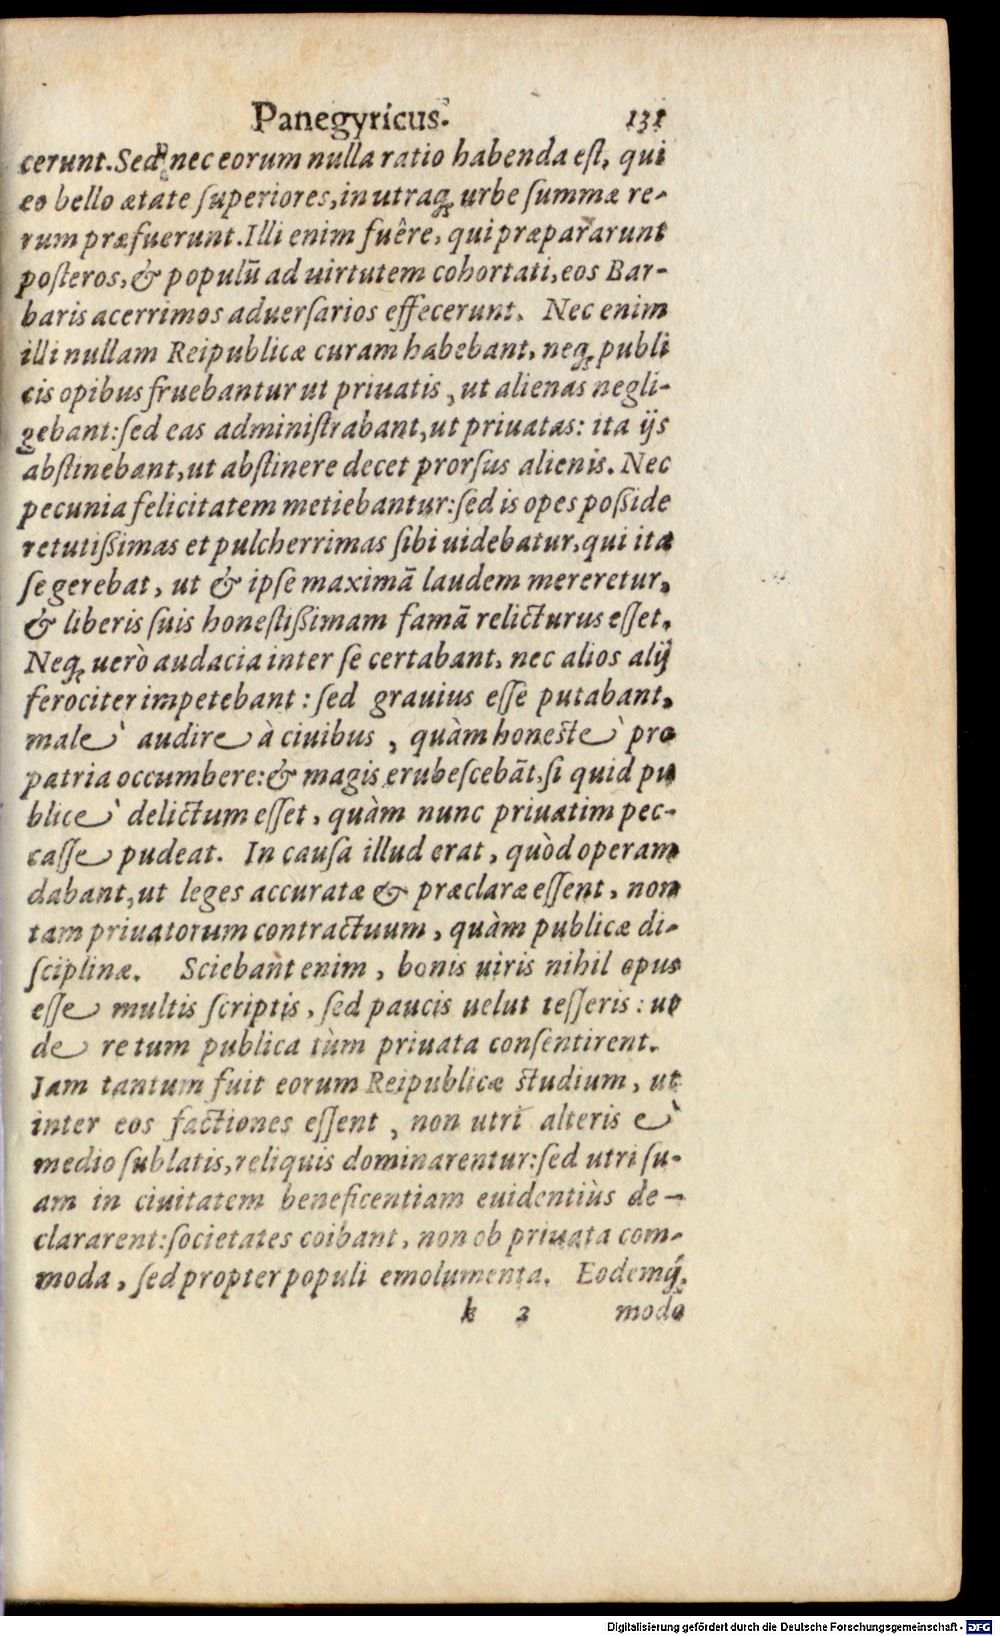 Panegyricus. 131
cerunt. Sed nec eorum nulla ratio habenda eſt, qui
eo bello ætate ſuperiores, in utraq; urbe ſummæ re-
rum præfuerunt. Illi enim fuêre, qui præpararunt
poſteros, & populū ad uirtutem cohortati, eos Bar-
baris acerrimos aduerſarios effecerunt. Nec enim
illi nullam Reipublicæ curam habebant, neq; publi
cis opibus fruebantur ut priuatis, ut alienas negli-
gebant: ſed eas adminiſtrabant, ut priuatas: ita ijs
abſtinebant, ut abſtinere decet prorſus alienis. Nec
pecunia felicitatem metiebantur: ſed is opes poſſide
re tutiſſimas et pulcherrimas ſibi uidebatur, qui ita
ſe gerebat, ut & ipſe maximā laudem mereretur,
& liberis ſuis honeſtiſſimam famā relicturus eſſet.
Neq; uerò audacia inter ſe certabant, nec alios alij
ferociter impetebant: ſed grauius eſſe putabant,
malè audire à ciuibus, quàm honeſtè pro
patria occumbere: & magis erubeſcebāt, ſi quid pu
blicè delictum eſſet, quàm nunc priuatim pec-
caſſe pudeat. In cauſa illud erat, quòd operam
dabant, ut leges accuratæ & præclaræ eſſent, non
tam priuatorum contractuum, quàm publicæ di-
ſciplinæ. Sciebant enim, bonis uiris nihil opus
eſſe multis ſcriptis, ſed paucis uelut teſſeris: ut
de re tum publica tùm priuata conſentirent.
Iam tantum fuit eorum Reipublicæ ſtudium, ut
inter eos factiones eſſent, non utri alteris è
medio ſublatis, reliquis dominarentur: ſed utri ſu-
am in ciuitatem beneficentiam euidentiùs de-
clararent: ſocietates coibant, non ob priuata com-
moda, ſed propter populi emolumenta. Eodemq́;
k 2 modo
Digitalisierung gefördert durch die Deutsche Forschungsgemeinschaft - DFG